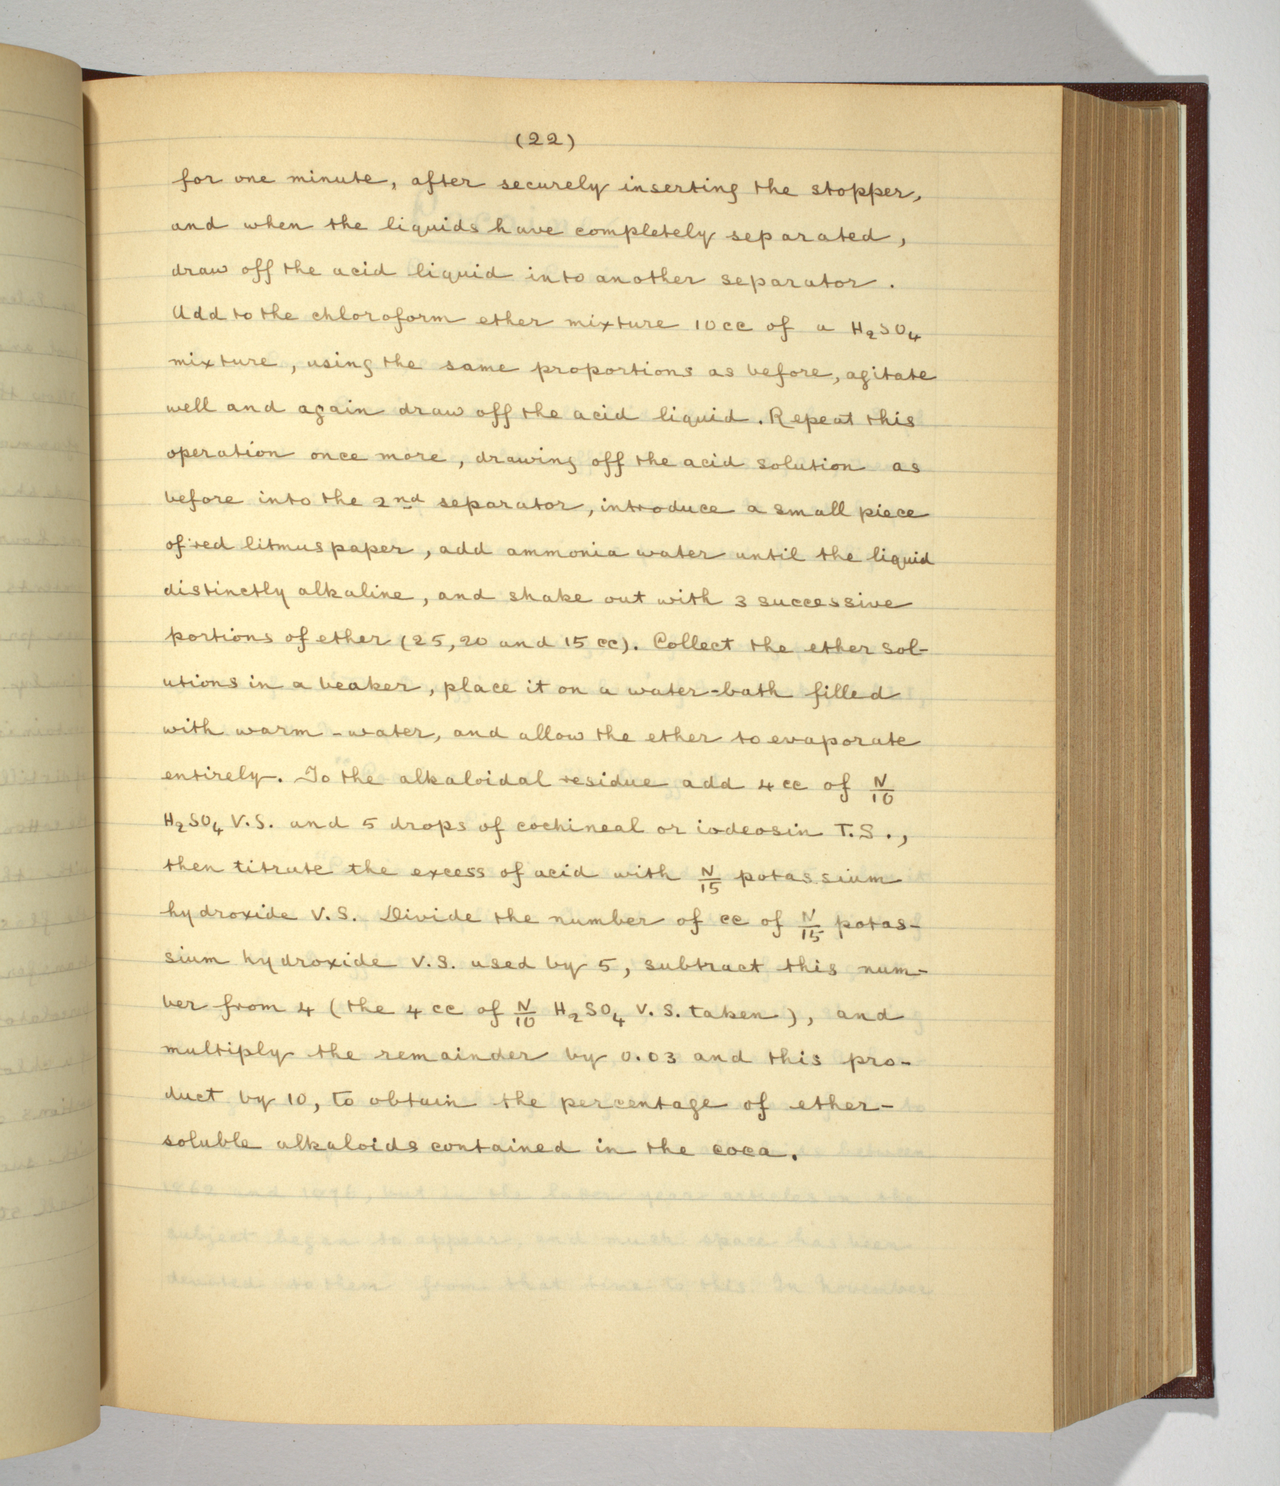 (22)
for one minute, after securely inserting the stopper,
and when the liquids have completely separated,
draw off the acid liquid into another separator.
Add to the chloroform ether mixture 10cc of a H₂SO₄
mixture, using the same proportions as before, agitate
well and again draw off the acid liquid. Repeat this
operation once more, drawing off the acid solution as
before into the 2nd separator, introduce a small piece
of red litmus paper, add ammonia water until the liquid
distinctly alkaline, and shake out with 3 successive
portions of ether (25, 20 and 15 cc). Collect the ether sol-
utions in a beaker, place it on a water-bath filled
with warm-water, and allow the ether to evaporate
entirely. To the alkaloidal residue add 4 cc of N/10
H₂SO₄ V.S. and 5 drops of cochineal or iodeosin T.S.,
then titrate the excess of acid with N/15 potassium
hydroxide V.S. Divide the number of cc of N/15 potas-
sium hydroxide V.S. used by 5, subtract this num-
ber from 4 (the 4 cc of N/10 H₂SO₄ V.S. taken), and
multiply the remainder by 0.03 and this pro-
duct by 10, to obtain the percentage of ether-
soluble alkaloids contained in the coca.
subject began to appear, and much space has been
devoted to them from that time to this. In November